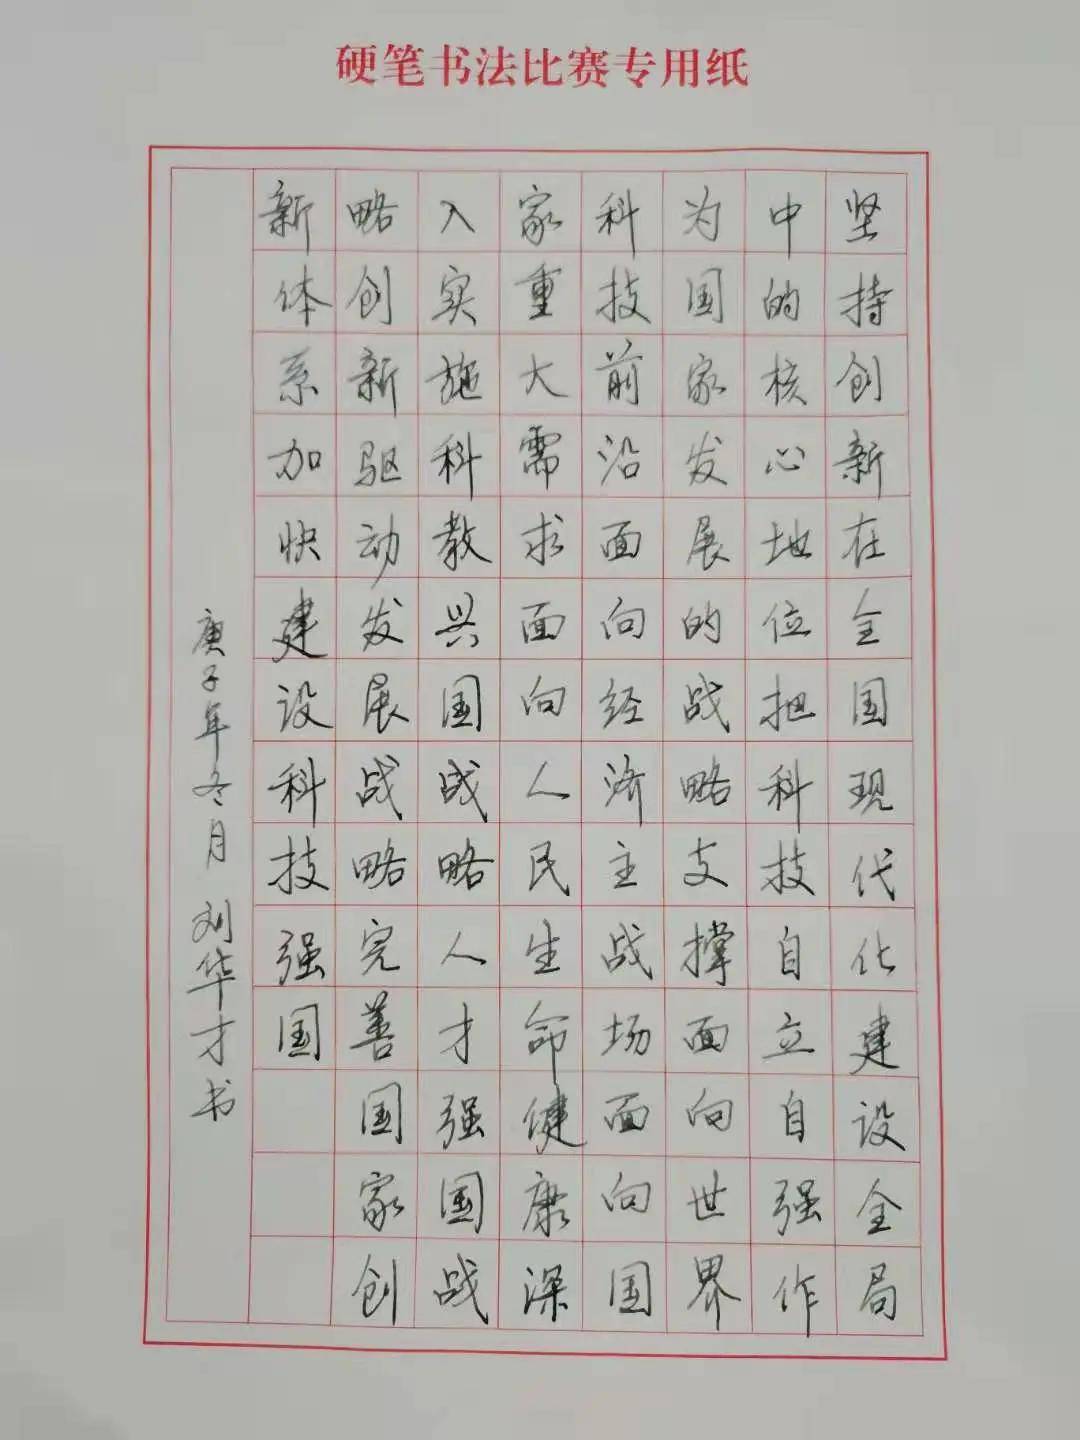 硬笔书法比赛专用纸
坚持创新在全国现代化建设全局
中的核心地位把科技自立自强作
为国家发展的战略支撑面向世界
科技前沿面向经济主战场面向国
家重大需求面向人民生命健康深
入实施科教兴国战略人才强国战
略创新驱动发展战略完善国家创
新体系加快建设科技强国
庚子年冬月 刘华才书